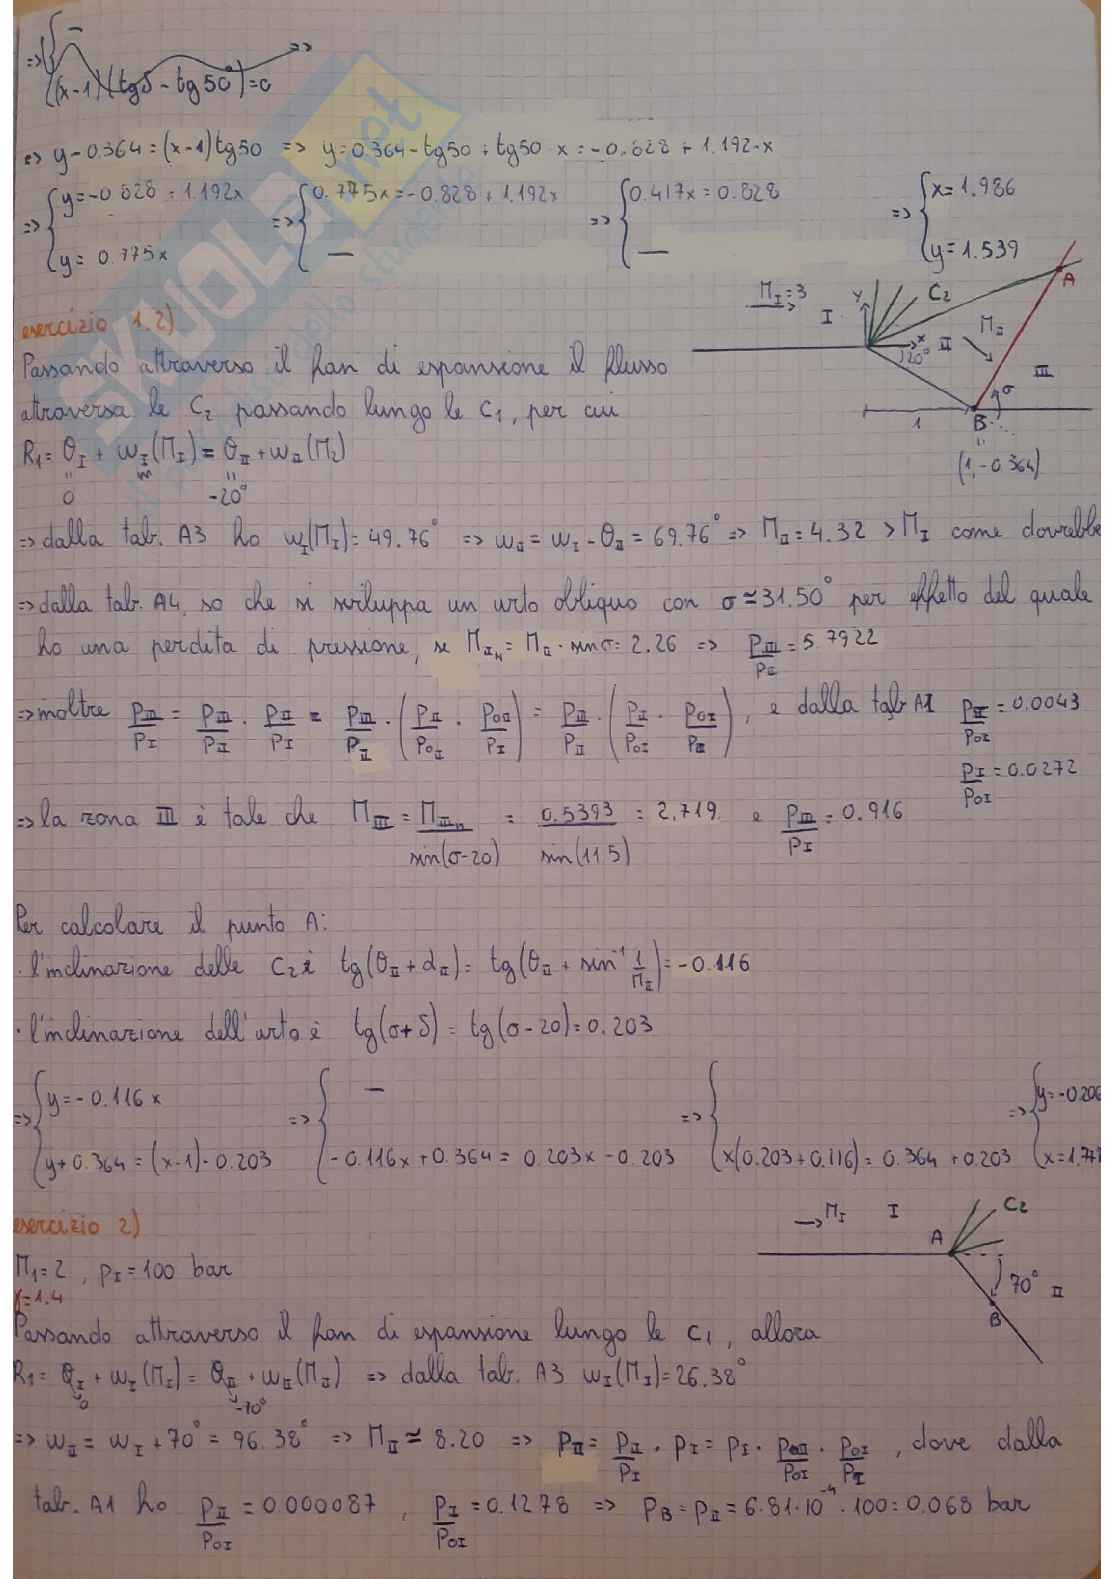 => { —
(x-1)(tgδ - tg50°)=0 =>
=> y-0.364=(x-1)tg50 => y=0.364-tg50+tg50·x=-0.828+1.192·x
=> { y=-0.828+1.192x => { 0.775x=-0.828+1.192x => { 0.417x=0.828 => { x=1.986
y=0.775x — — y=1.539
M_I=3 I Y C2 A
x II M_II 20° III
σ
1 B
(1,-0.364)
esercizio 1.2)
Passando attraverso il fan di espansione il flusso
attraversa le C2 passando lungo le C1, per cui
R1= θ_I + ω_I(M_I) = θ_II + ω_II(M_2)
0 -20°
=> dalla tab. A3 ho ω_I(M_I)=49.76° => ω_II = ω_I - θ_II = 69.76° => M_II=4.32 >M_I come dovrebbe
=> dalla tab. A4, so che si sviluppa un urto obliquo con σ≃31.50° per effetto del quale
ho una perdita di pressione, se M_IIn = M_II · sinσ=2.26 => p_III/p_II = 5.7922
=> inoltre p_III/p_I = p_III/p_II · p_II/p_I = p_III/p_II · (p_II/p_0I · p_0II/p_I) = p_III/p_II · (p_I/p_0I · p_0I/p_II), e dalla tab A1 p_II/p_0I = 0.0043
p_I/p_0I = 0.0272
=> la zona III è tale che M_III = M_IIIn/sin(σ-20) = 0.5393/sin(11.5) = 2.719 e p_III/p_I = 0.916
Per calcolare il punto A:
· l'inclinazione delle C2 è tg(θ_II+α_II)= tg(θ_II + sin⁻¹ 1/M_II)=-0.116
· l'inclinazione dell'urto è tg(σ+δ) = tg(σ-20)=0.203
=> { y=-0.116x => { — => { => { y=-0.206
y+0.364=(x-1)·0.203 -0.116x+0.364= 0.203x-0.203 x(0.203+0.116)= 0.364+0.203 x=1.777
esercizio 2)
M_I I C2
A
70° II
B
M1=2, p_I=100 bar
γ=1.4
Passando attraverso il fan di espansione lungo le C1, allora
R1= θ_I + ω_I(M_I)= θ_II + ω_II(M_II) => dalla tab. A3 ω_I(M_I)=26.38°
0 -70°
=> ω_II = ω_I + 70° = 96.38° => M_II ≃ 8.20 => p_II = p_II/p_I · p_I = p_I · p_0II/p_0I · p_0I/p_I, dove dalla
tab. A1 ho p_II/p_0I = 0.000087, p_I/p_0I = 0.1278 => p_B = p_II = 6.81·10⁻⁴·100=0.068 bar
SKUOLA.net